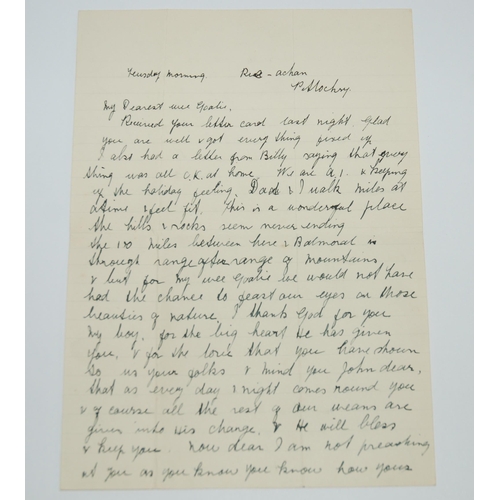 Teusday Morning. Ris-achan
Pitlochry.
My Dearest wee
Received your letter card last night. Glad
you are well & got every thing fixed up
I also had a letter from Billy saying that every
thing was all O.K. at home. We are A.1. & keeping
up the holiday feeling. Dad & I walk miles at
a time & feel fit. This is a wonderful place
the hills & rocks seem never ending
the 100 miles between here & Balmoral is
through range after range of mountains
& but for my wee we would not have
had the chance to feast our eyes on those
beauties of nature. I thank God for you
my boy. for the big heart He has given
you, & for the love that you have shown
to us your folks & mind you John dear,
that as every day & night comes round you
& of course all the rest of our weans are
given into His charge, & He will bless
& keep you. Now dear I am not preaching
at you as you know you know how yours